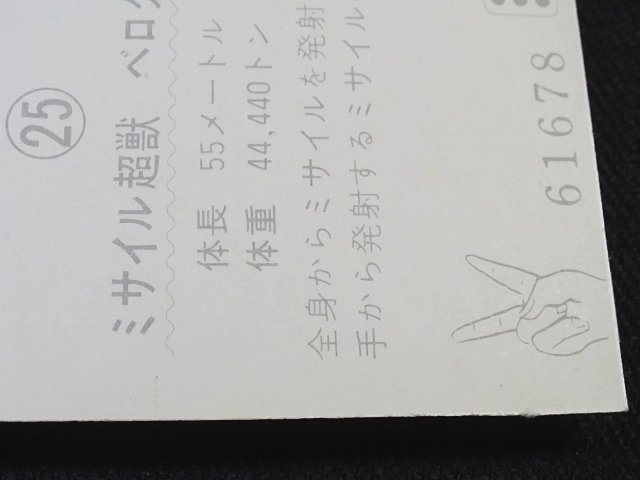 ㉕
ミサイル超獣 ベロク
体長 55メートル
体重 44,440トン
全身からミサイルを発射
手から発射するミサイル
61678